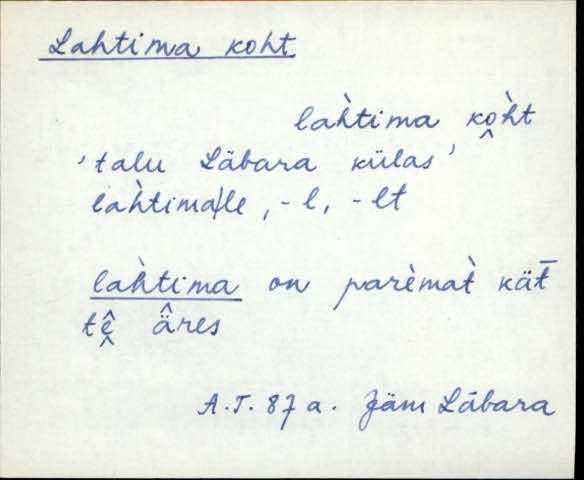 Lahtima koht
lah̀tima ko̭h̀t
'talu Läbara külas'
lah̀tima|le, -l, -lt
lah̀tima on parèmat̀ kät̄
tḙ̂ ä̂res
A.T. 87 a. Jäm Läbara